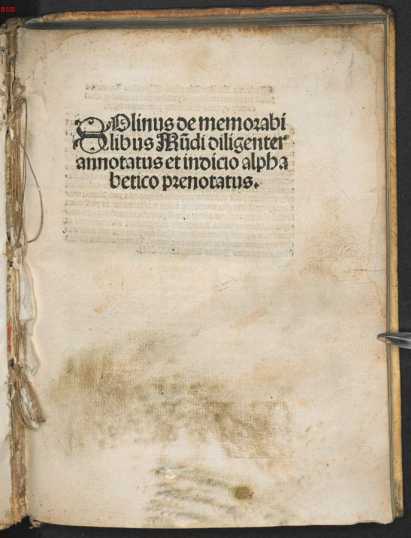 SOlinus de memorabi
libus Mũdi diligenter
annotatus et indicio alpha
betico prenotatus.